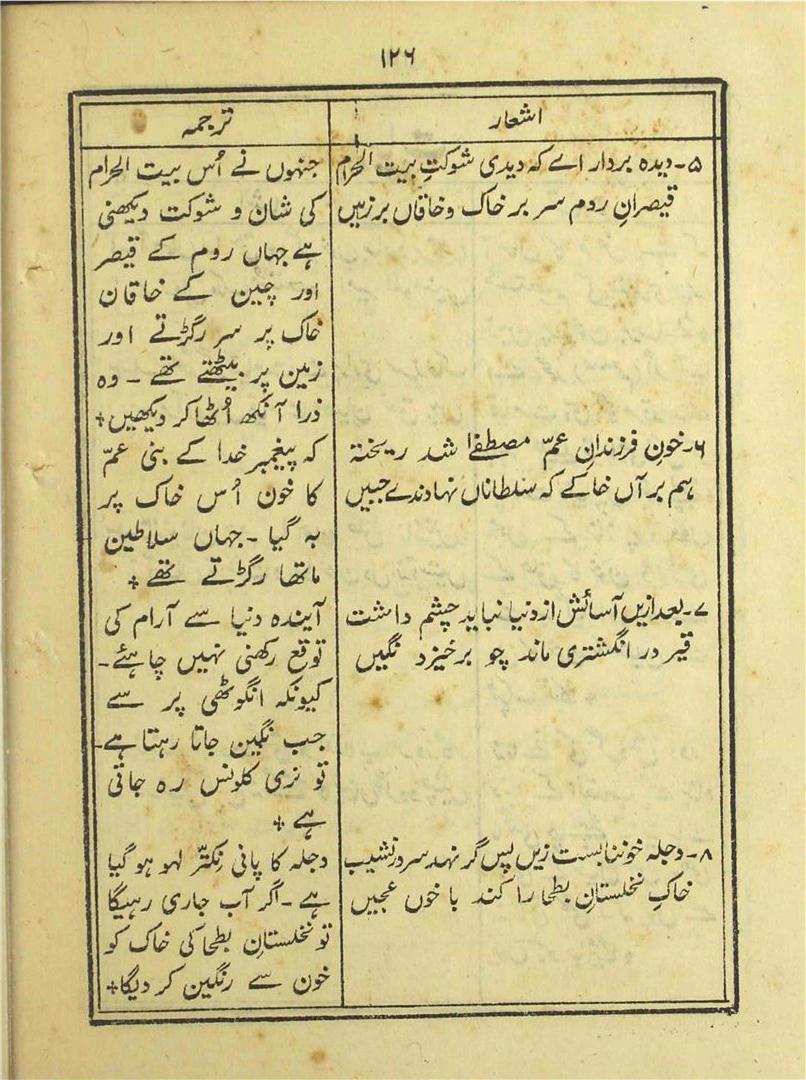 ۱۲۶
اشعار
ترجمہ
۵۔ دیدہ بردار اے کہ دیدی شوکتِ بیت الحرام
قیصرانِ روم سر بر خاک و خاقاں بر زمیں
جنہوں نے اُس بیت الحرام
کی شان و شوکت دیکھنی
ہے جہاں روم کے قیصر
اور چین کے خاقان
خاک پر سر رگڑتے اور
زمین پر بیٹھتے تھے ۔ وہ
ذرا آنکھ اُٹھا کر دیکھیں+
۶۔ خونِ فرزندانِ عمّ مصطفےٰا شد ریختہ
ہم بر آں خاکے کہ سلطاناں نہادندے جبیں
کہ پیغمبر خدا کے بنی عمّ
کا خون اُس خاک پر
بہ گیا ۔ جہاں سلاطین
ماتھا رگڑتے تھے +
۷۔ بعد ازیں آسائش از دنیا نباید چشم داشت
قیر در انگشتری ماند چو برخیزد نگیں
آیندہ دنیا سے آرام کی
توقع رکھنی نہیں چاہئے۔
کیونکہ انگوٹھی پر سے
جب نگین جاتا رہتا ہے۔
تو نری کلونس رہ جاتی
ہے +
۸۔ دجلہ خوننابست زیں پس گر نہد سر در نشیب
خاکِ نخلستانِ بطحا را کند با خوں عجیں
دجلہ کا پانی لہو ہو گیا
ہے ۔ اگر آب جاری رہیگا
تو نخلستانِ بطحا کی خاک کو
خون سے رنگین کر دیگا+